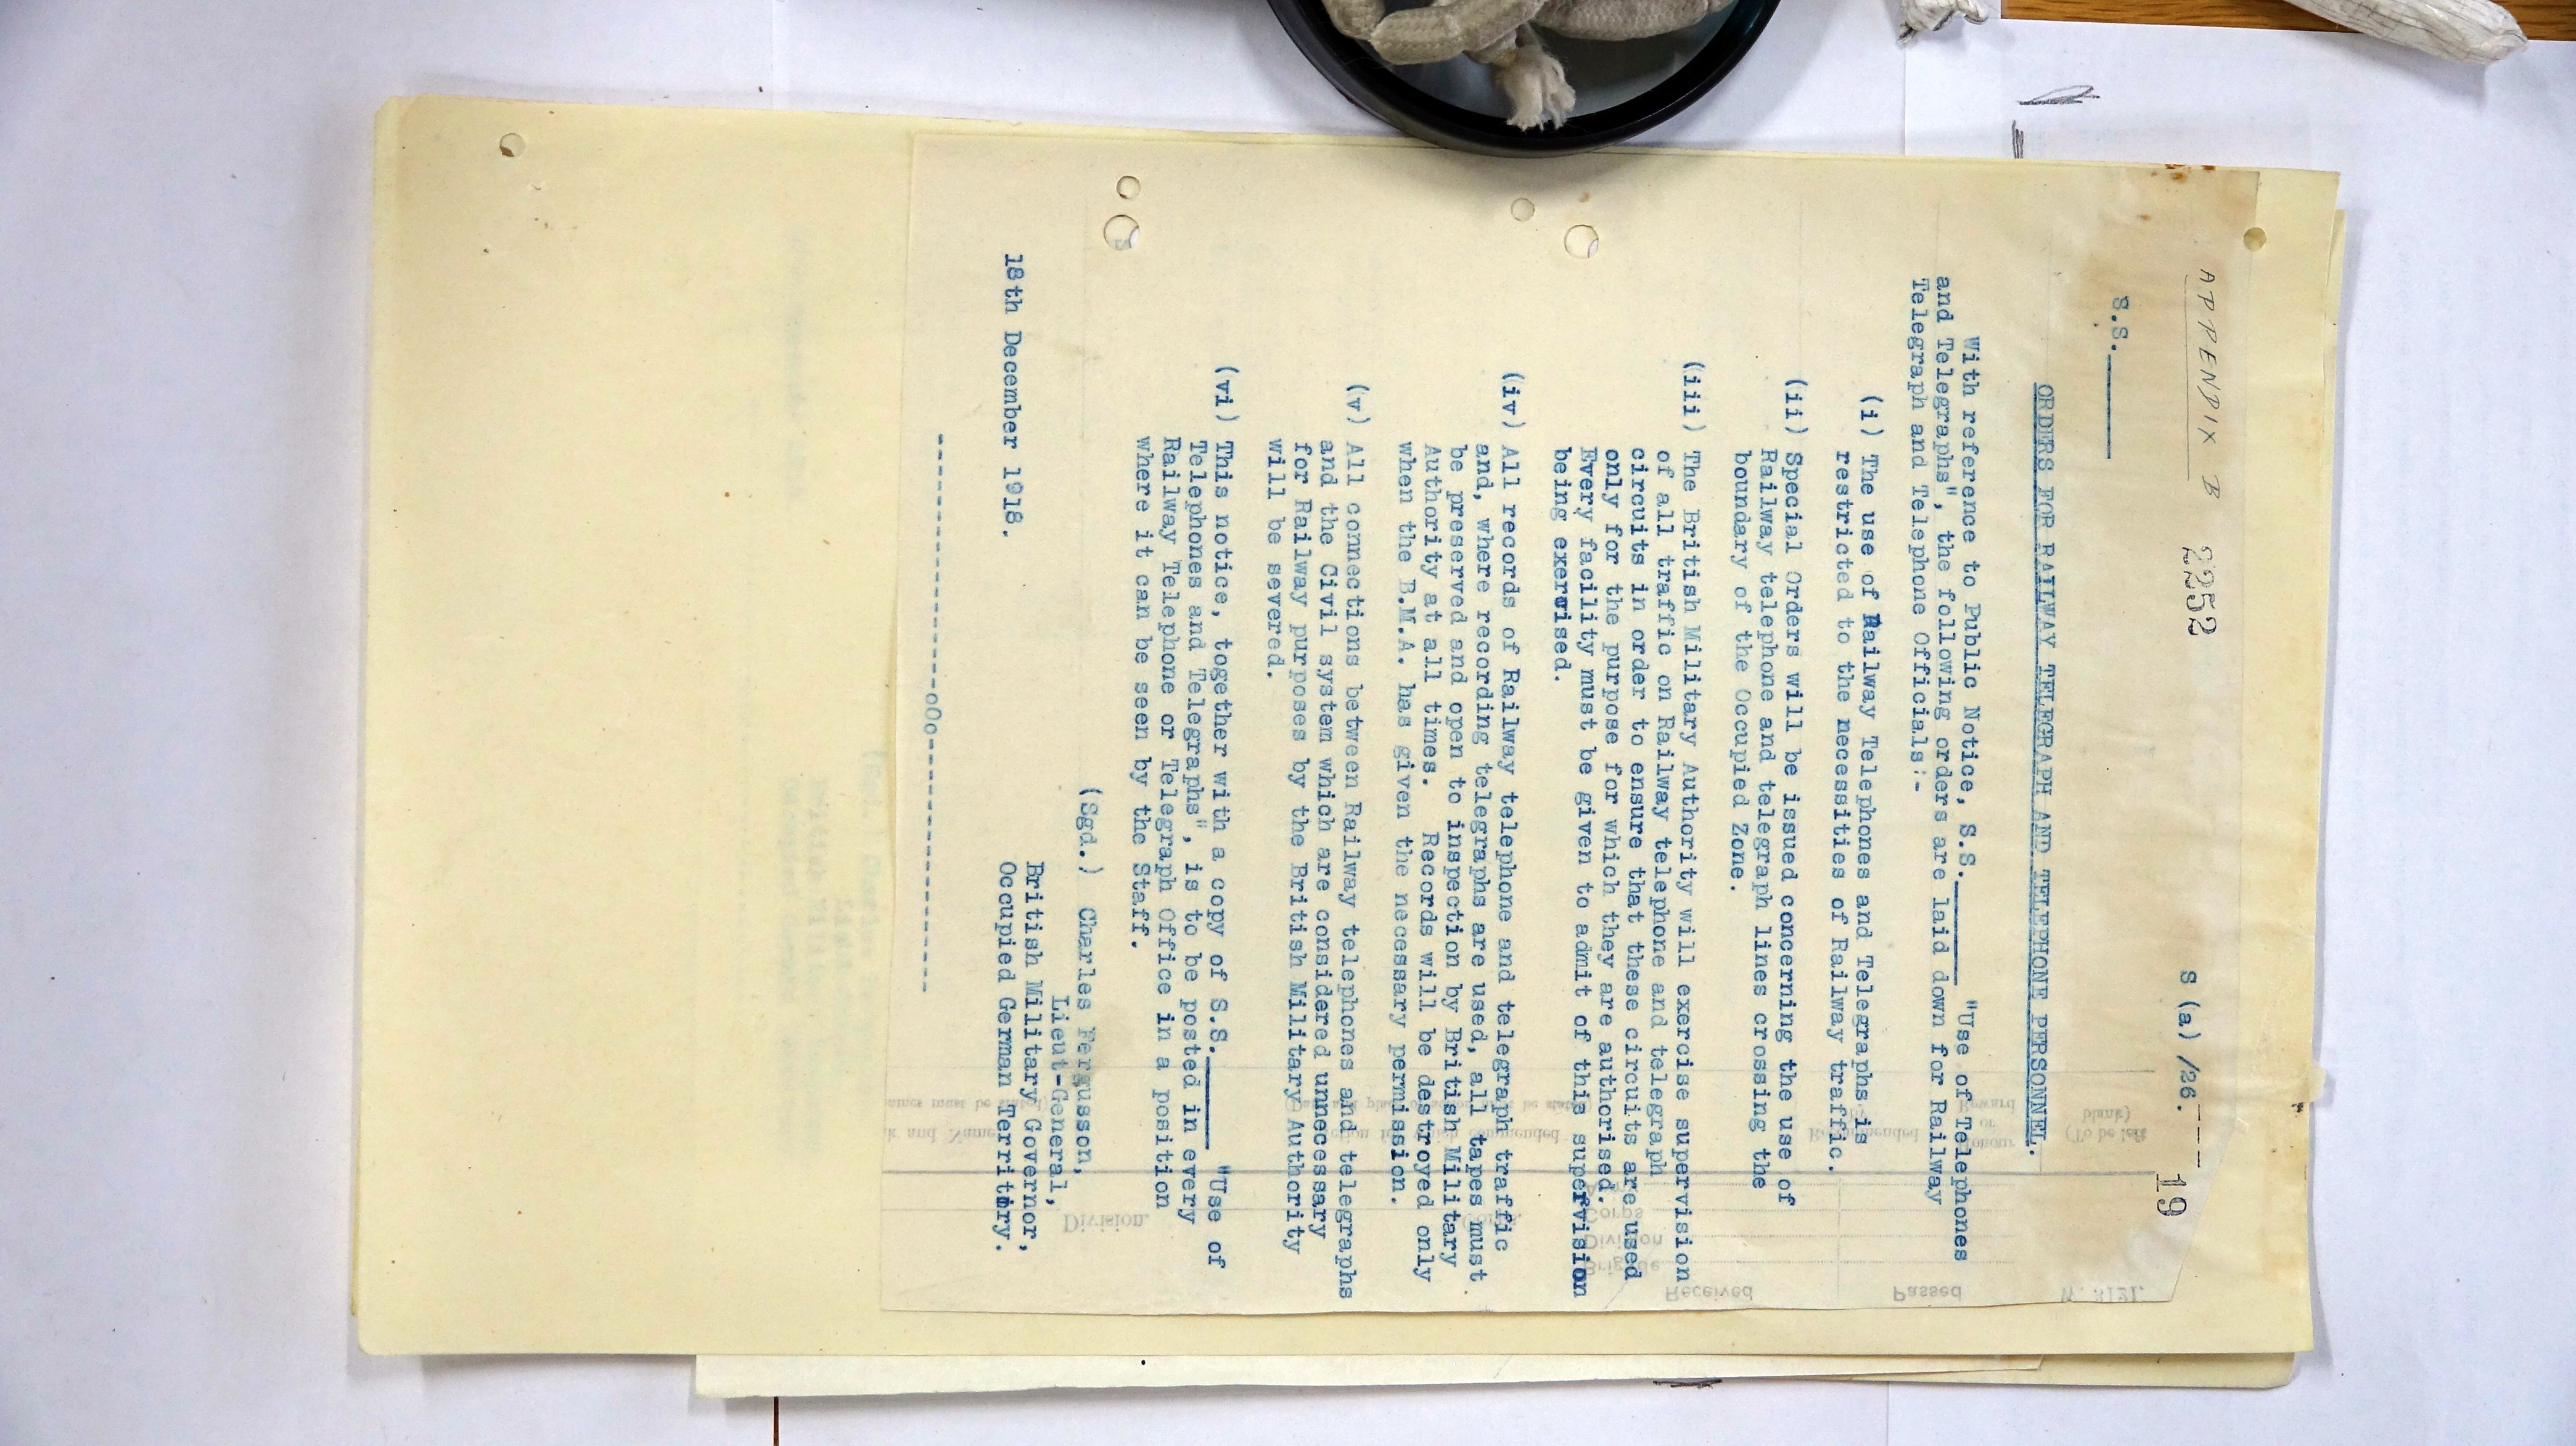 APPENDIX B 2252
S (a) /26.---- 19
S.S.______
ORDERS FOR RAILWAY TELEGRAPH AND TELEPHONE PERSONNEL.
With reference to Public Notice, S.S.______ "Use of Telephones
and Telegraphs", the following orders are laid down for Railway
Telegraph and Telephone Officials:-
(i) The use of Railway Telephones and Telegraphs is
restricted to the necessities of Railway traffic.
(ii) Special Orders will be issued concerning the use of
Railway telephone and telegraph lines crossing the
boundary of the Occupied Zone.
(iii) The British Military Authority will exercise supervision
of all traffic on Railway telephone and telegraph
circuits in order to ensure that these circuits are used
only for the purpose for which they are authorised.
Every facility must be given to admit of this supervision
being exercised.
(iv) All records of Railway telephone and telegraph traffic
and, where recording telegraphs are used, all tapes must
be preserved and open to inspection by British Military
Authority at all times. Records will be destroyed only
when the B.M.A. has given the necessary permission.
(v) All connections between Railway telephones and telegraphs
and the Civil system which are considered unnecessary
for Railway purposes by the British Military Authority
will be severed.
(vi) This notice, together with a copy of S.S.______ "Use of
Telephones and Telegraphs", is to be posted in every
Railway Telephone or Telegraph Office in a position
where it can be seen by the Staff.
(Sgd.) Charles Fergusson,
Lieut-General,
British Military Governor,
18th December 1918. Occupied German Territory.
--------------------oOo--------------------
W. 3121.
Passed
Received
Brigade
Division
Corps
Division.
(To be left
blank)
Honour
or
Reward
Recommended